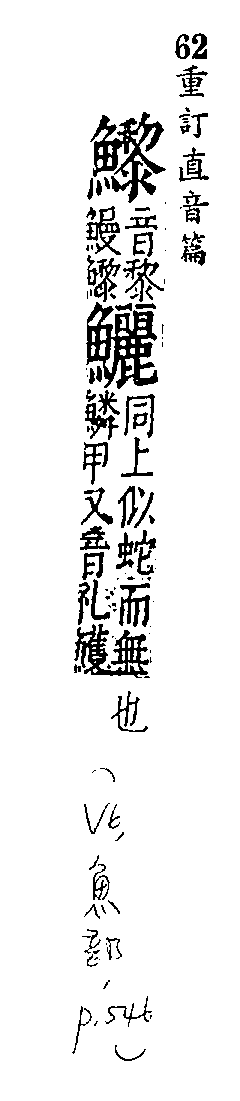 62重訂直音篇
音黎
鰻
鱺
同上似蛇而無
鱗甲又音礼鱯
也
(V6,魚部,p.546)